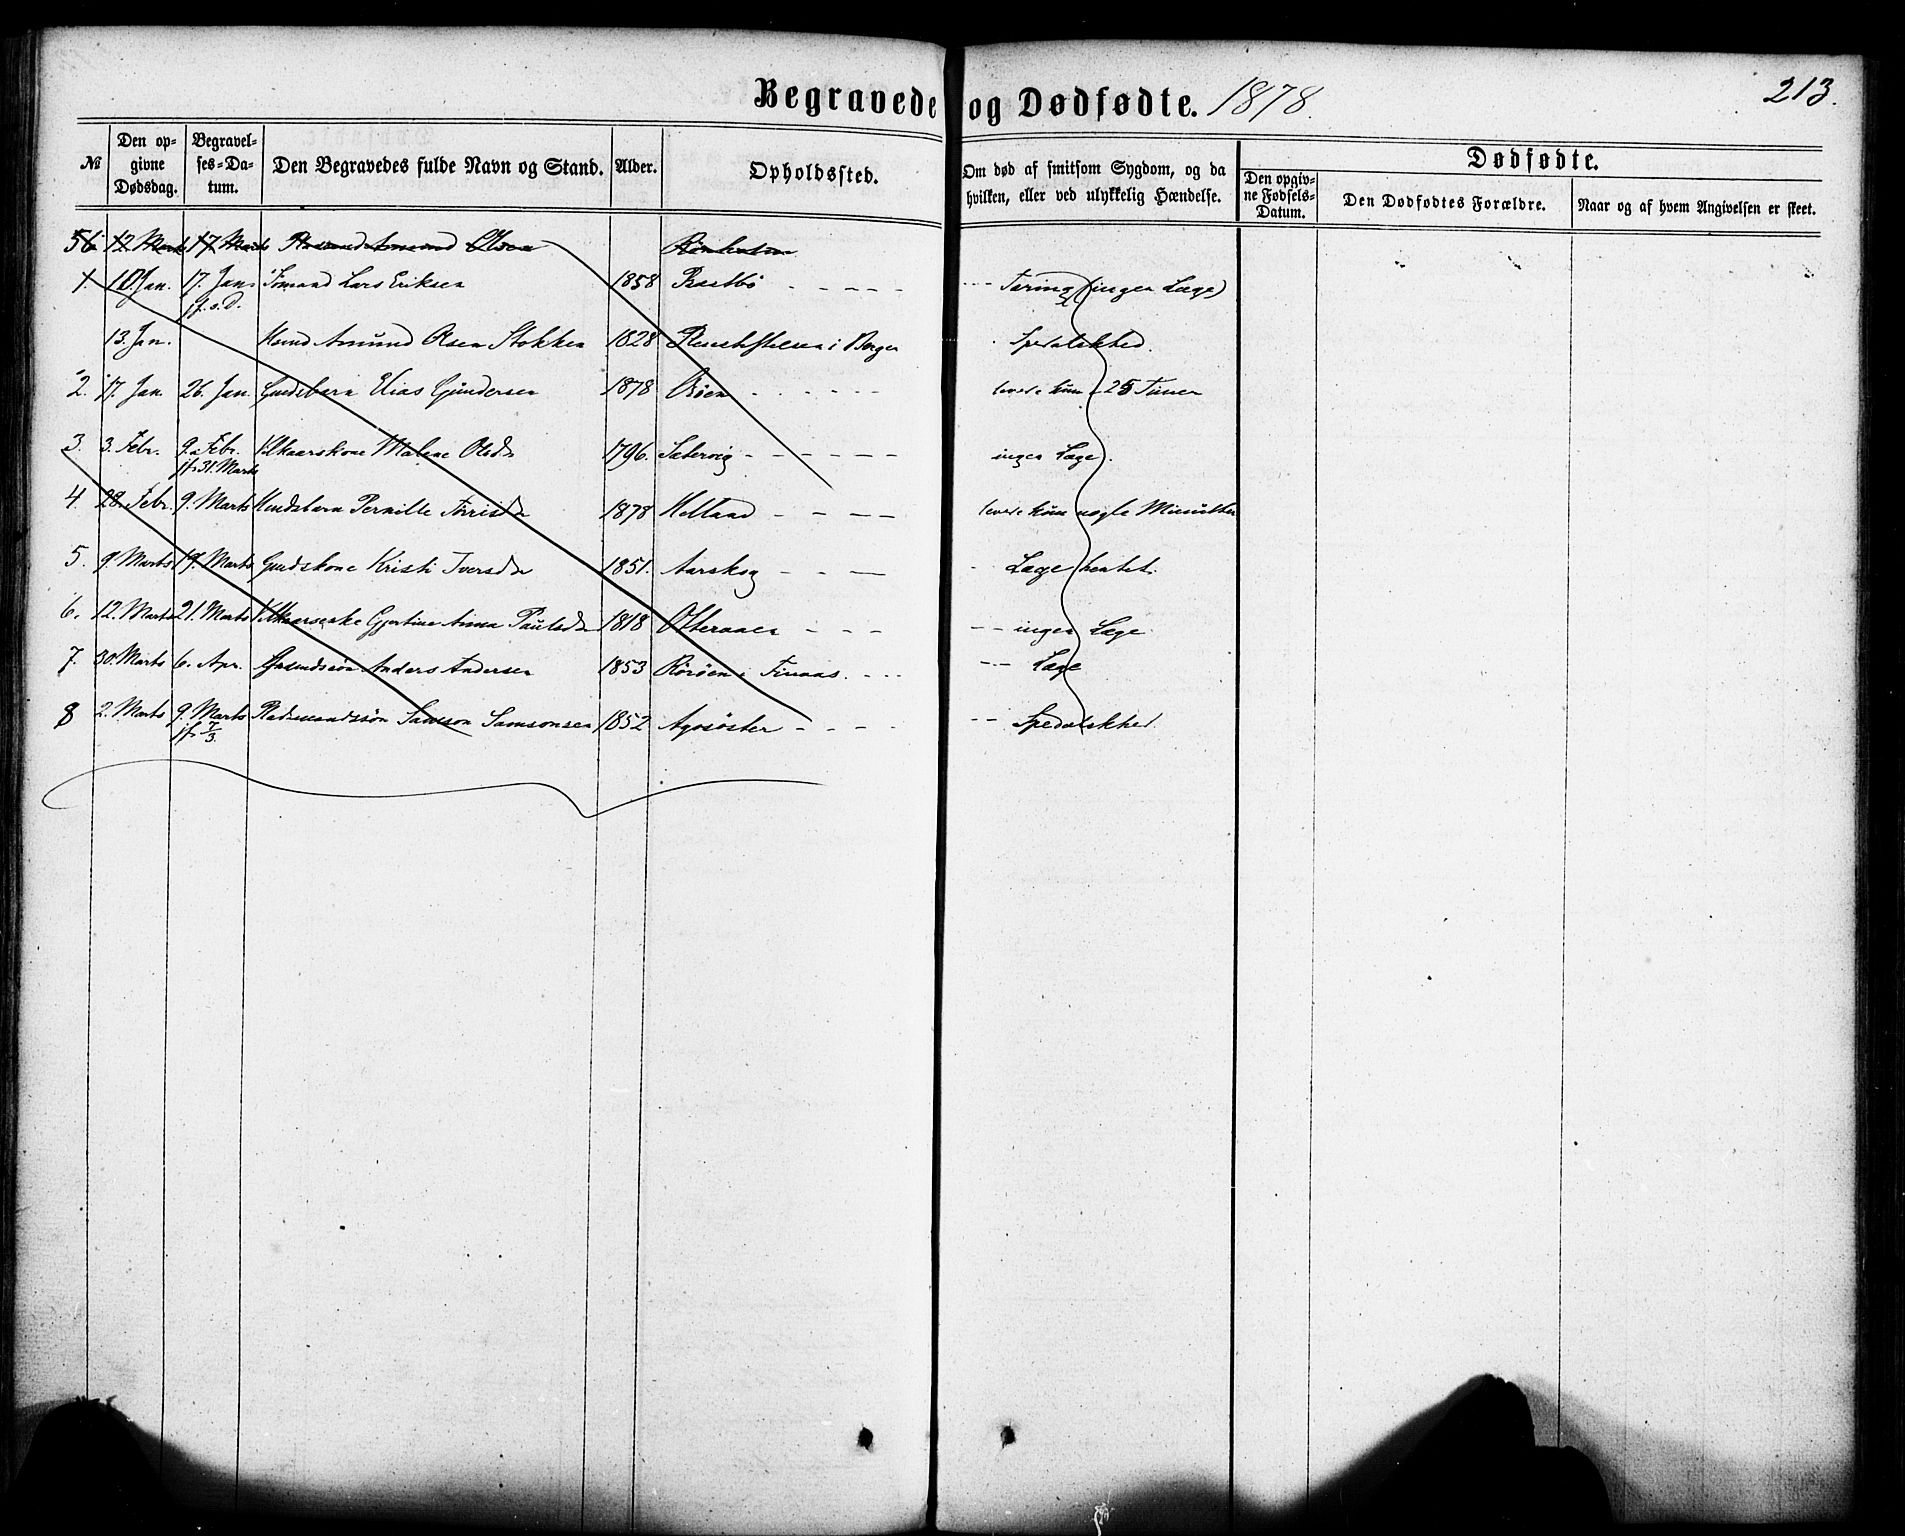 Begravede og Dødfødte. 1878.
213.
№
Den op-
givne
Dødsdag.
Begravel-
ses-Da-
tum.
Den Begravedes fulde Navn og Stand.
Alder.
Opholdssted.
Om død af smitsom Sygdom, og da
hvilken, eller ved ulykkelig Hændelse.
Dødfødte.
Den opgiv-
ne Fødsels-
Datum.
Den Dødfødtes Forældre.
Naar og af hvem Angivelsen er skeet.
56 12. Marts 17 Marts Amund Olsen
1. 10. Jan. 17. Jan. Lars Eriksen 1858 - - - - - - - Tæring (ingen Læge)
jf. s. D.
13. Jan. Amund Olsen Stokken 1828 Pleiestiftelsen i Bergen Spedalskhed.
2. 17. Jan. 26. Jan. Gmdsbarn Elias Gundersen 1878 - - - - - levede kun 25 Timer
3. 3. Febr. 9. Febr. Vilkaarskone Malene Olsd. 1796. Sætervig - - - - - - ingen Læge.
jf. 31. Marts
4. 28. Febr. 9. Marts Pernille 1878 - - - - levede kun nogle Minutter
5. 9. Marts 19. Marts Gmdskone Kristi Iversd. 1851. - - - Læge hentet.
6. 12. Marts 21. Marts Gjertine Anna Paulsd. 1818 - - - - - ingen Læge.
7. 30. Marts 6. Apr. Anders Andersen 1853 - - - - - Læge
8 2. Marts 9. Marts Samson Samsonsen 1852 - - - - - - Spedalskhed.
jf. 7/3.